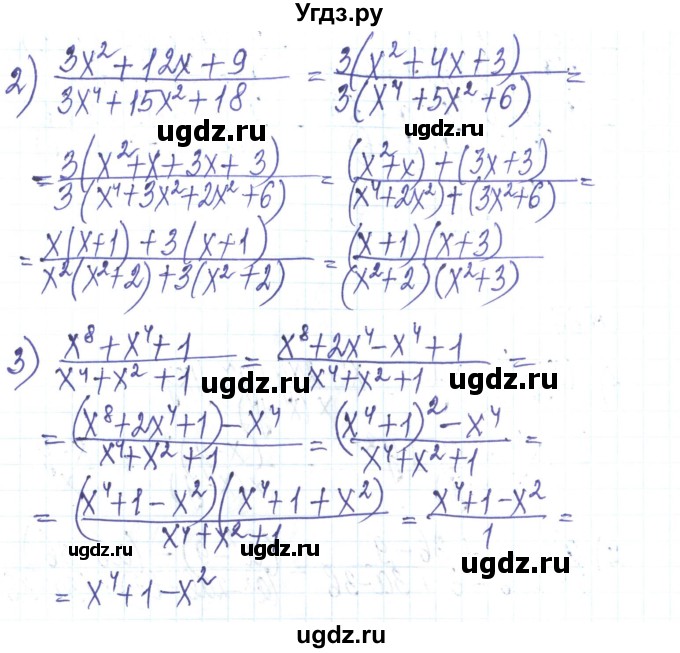 Угдз.ру
2) (3x² + 12x + 9)/(3x⁴ + 15x² + 18) = 3(x² + 4x + 3)/3(x⁴ + 5x² + 6) =
ugdz.ru ugdz.ru
= 3(x² + x + 3x + 3)/3(x⁴ + 3x² + 2x² + 6) = ((x² + x) + (3x + 3))/((x⁴ + 2x²) + (3x² + 6)) =
= (x(x + 1) + 3(x + 1))/(x²(x² + 2) + 3(x² + 2)) = (x + 1)(x + 3)/(x² + 2)(x² + 3)
ugdz.ru ugdz.ru
3) (x⁸ + x⁴ + 1)/(x⁴ + x² + 1) = (x⁸ + 2x⁴ - x⁴ + 1)/(x⁴ + x² + 1) =
ugdz.ru ugdz.ru
= ((x⁸ + 2x⁴ + 1) - x⁴)/(x⁴ + x² + 1) = ((x⁴ + 1)² - x⁴)/(x⁴ + x² + 1) =
= (x⁴ + 1 - x²)(x⁴ + 1 + x²)/(x⁴ + x² + 1) = (x⁴ + 1 - x²)/1 =
ugdz.ru ugdz.ru
= x⁴ + 1 - x²
ugdz.ru